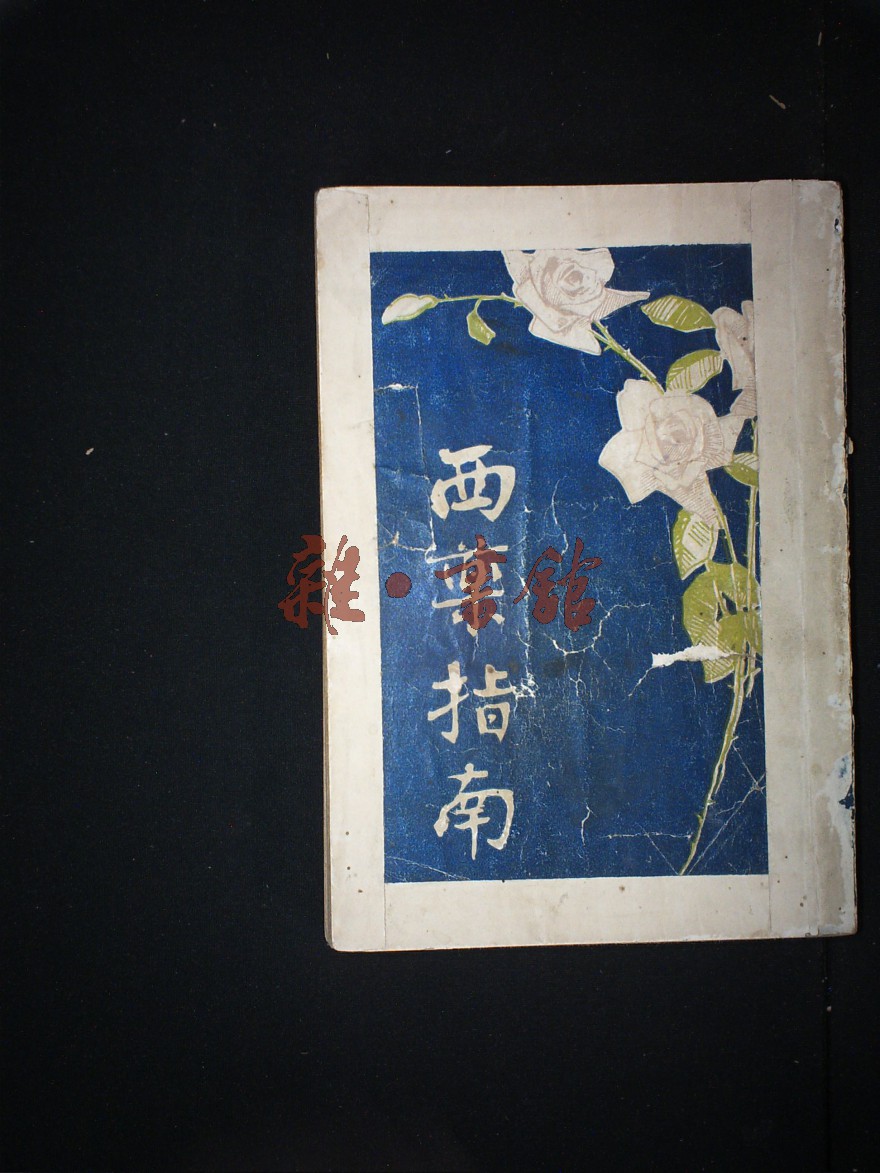 西藥指南
雜·書館